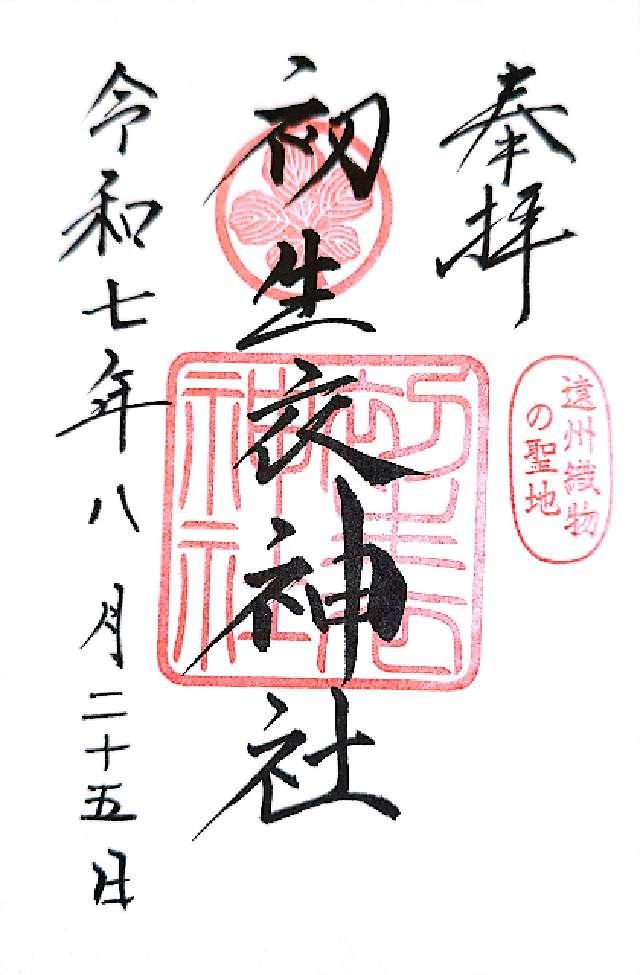 奉拝
遠州織物
の聖地
初生衣神社
令和七年八月二十五日